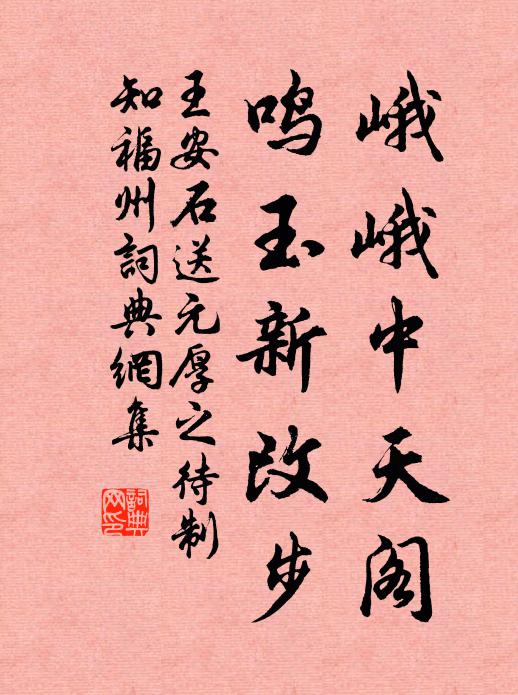 峨峨中天阁
鸣玉新改步
王安石送元厚之待制
知福州詞典網集
詞典網印